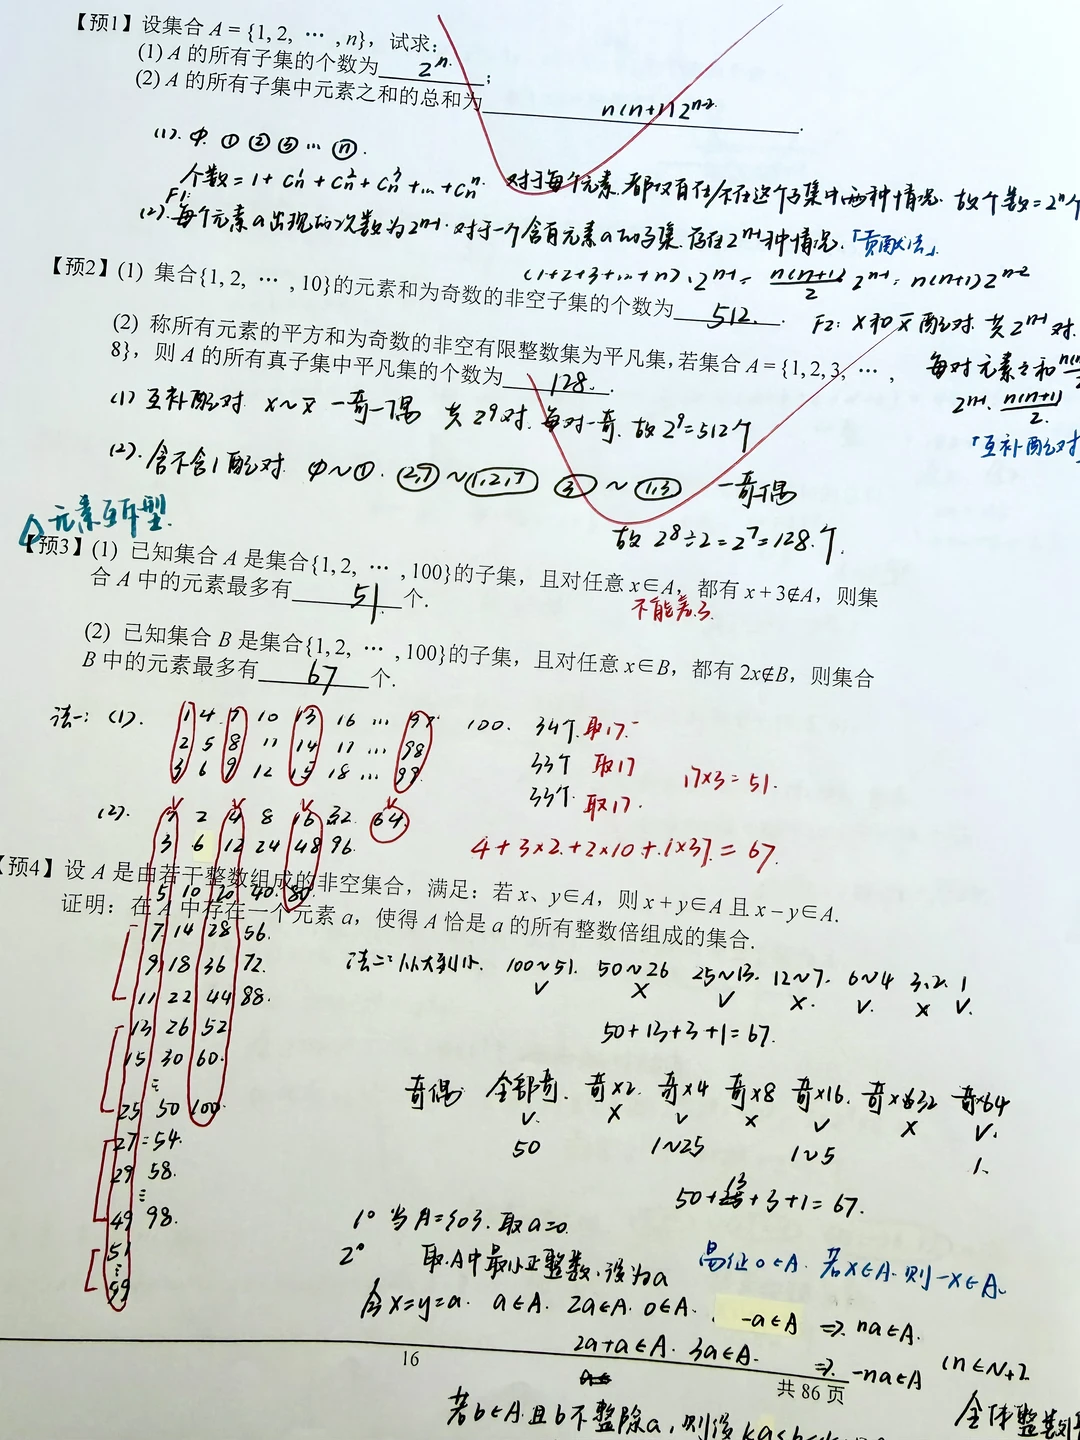 【预1】设集合 A = {1, 2, ⋯ , n}，试求：
(1) A 的所有子集的个数为 2ⁿ ；
(2) A 的所有子集中元素之和的总和为 n(n+1)2ⁿ⁻² .
(1). φ. ① ② ③ … ⓝ .
个数 = 1 + Cn¹ + Cn² + Cn³ + … + Cnⁿ. 对于每个元素.都仅有在/不在这个子集中两种情况. 故个数=2ⁿ个
F1:
(2).每个元素a出现的次数为2ⁿ⁻¹.对于一个含有元素a的子集.存在2ⁿ⁻¹种情况.「贡献法」.
(1+2+3+…+n)·2ⁿ⁻¹ = n(n+1)/2 · 2ⁿ⁻¹ = n(n+1)2ⁿ⁻²
【预2】(1) 集合{1, 2, ⋯ , 10}的元素和为奇数的非空子集的个数为 512 .
F2: X和X̅配对. 共2ⁿ⁻¹对.
(2) 称所有元素的平方和为奇数的非空有限整数集为平凡集, 若集合 A = {1, 2, 3, ⋯ ,
8}，则 A 的所有真子集中平凡集的个数为 128. .
每对元素之和
2ⁿ⁻¹·n(n+1)/2.
「互补配对
(1) 互补配对. X~X̅ 一奇一偶 共2⁹对.每对一奇.故2⁹=512个
(2). 含不含1配对. φ~①. (2,7)~(1,2,7) (3)~(1,3) 一奇一偶
故 2⁸÷2=2⁷=128.个.
元素互斥型.
【预3】(1) 已知集合 A 是集合{1, 2, ⋯ ,100}的子集，且对任意 x∈A，都有 x + 3∉A，则集
合 A 中的元素最多有 51 个.
不能差3.
(2) 已知集合 B 是集合{1, 2, ⋯ ,100}的子集，且对任意 x∈B，都有 2x∉B，则集合
B 中的元素最多有 67 个.
法一: (1). 1 4 7 10 13 16 … 97 100. 34个.取17.
2 5 8 11 14 17 … 98 33个 取17
3 6 9 12 15 18 … 99. 33个. 取17.
17×3=51.
(2). 1 2 4 8 16 32 64.
3 6 12 24 48 96.
4+3×2+2×10+1×37=67.
【预4】设 A 是由若干整数组成的非空集合，满足：若 x、y∈A，则 x + y∈A 且 x − y∈A.
5 10 20 40 80
证明：在 A 中存在一个元素 a，使得 A 恰是 a 的所有整数倍组成的集合.
7 14 28 56.
9 18 36 72.
11 22 44 88.
13 26 52
15 30 60.
⋮
25 50 100.
27 54.
29 58.
⋮
49 98.
51
⋮
99
法二: 从大到小. 100~51. 50~26 25~13. 12~7. 6~4 3.2. 1
√ × √ × √. × √.
50+13+3+1=67.
奇偶 全部奇. 奇×2. 奇×4 奇×8 奇×16. 奇×32 奇×64
√. × √ × √ × √.
50 1~25 1~5 1.
50+13+3+1=67.
1° 当A={0}.取a=0.
2° 取A中最小正整数,设为a 易征0∈A. 若X∈A.则-X∈A.
令x=y=a. a∈A. 2a∈A. 0∈A. -a∈A ⇒ na∈A.
2a+a∈A. 3a∈A. ⇒ -na∈A (n∈N+).
16
共 86 页
若b∈A.且b不整除a,则
全体整数